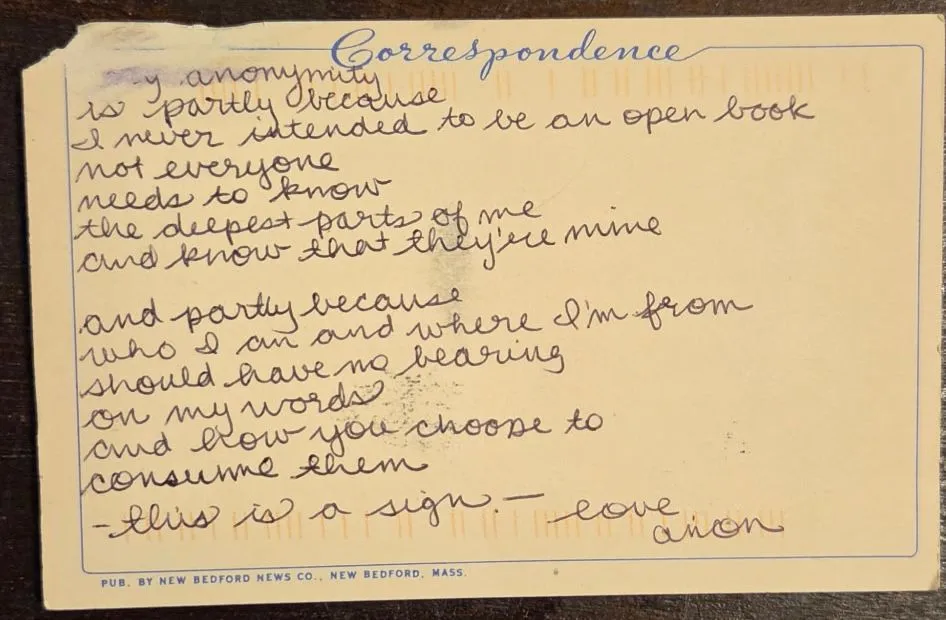 Correspondence
y anonymity
is partly because
I never intended to be an open book
not everyone
needs to know
the deepest parts of me
and know that they're mine
and partly because
who I am and where I'm from
should have no bearing
on my words
and how you choose to
consume them
- this is a sign. — love
anon
PUB. BY NEW BEDFORD NEWS CO., NEW BEDFORD, MASS.